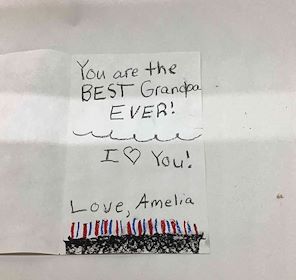 You are the
BEST Grandpa
EVER!
I ♡ You!
Love, Amelia